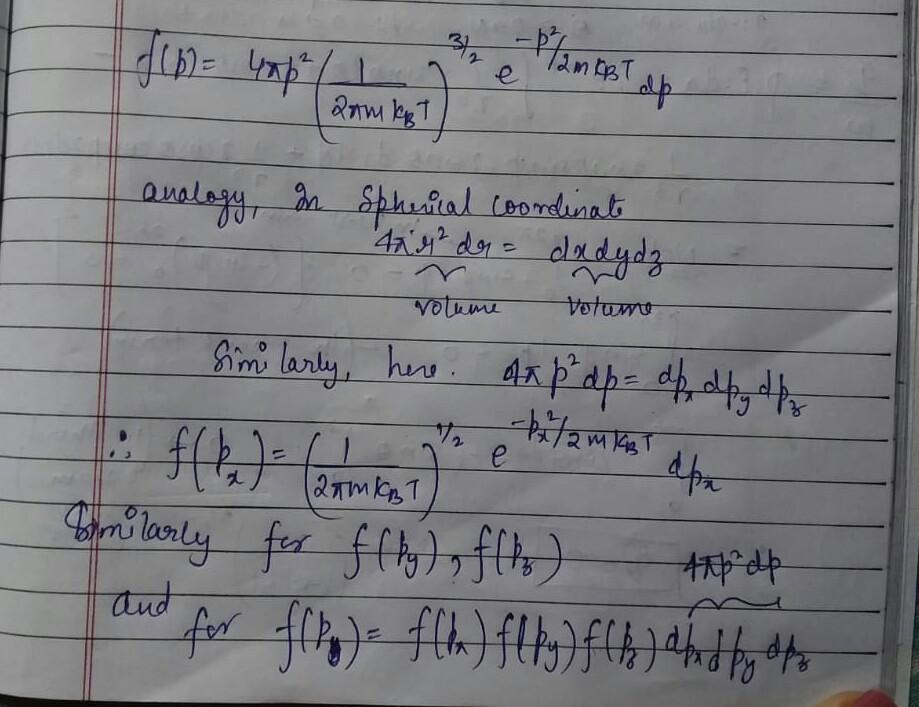 f(p) = 4πp² (1/2πmK_BT)^3/2 e^-p²/2mK_BT dp
analogy, In Spherical coordinate
4πr² dr = dxdydz
volume volume
Similarly, here. 4πp²dp = dp_x dp_y dp_z
∴ f(p_x) = (1/2πmK_BT)^1/2 e^-p_x²/2mK_BT dp_x
Similarly for f(p_y), f(p_z)
4πp²dp
and
for f(p) = f(p_x) f(p_y) f(p_z) dp_x dp_y dp_z